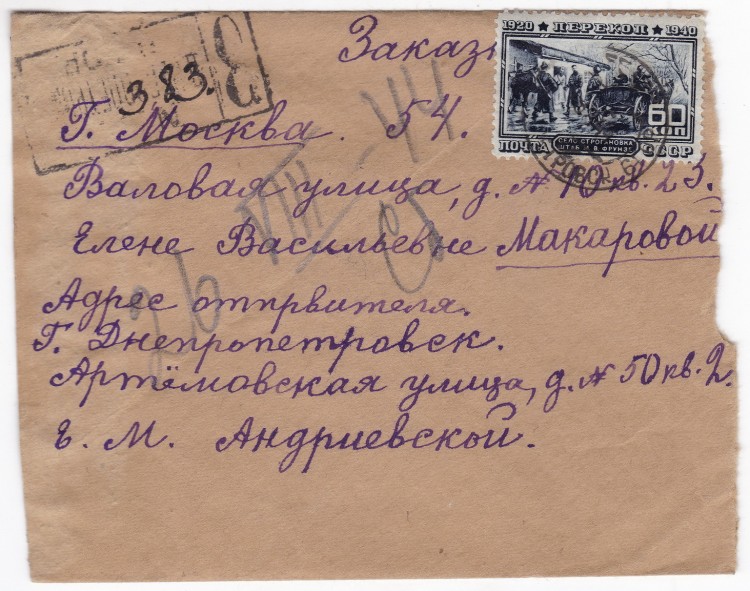 Заказн
З
383.
1920 ★ ПЕРЕКОП ★ 1940
60
КОП
СЕЛО СТРОГАНОВКА
ШТАБ М.В. ФРУНЗЕ
ПОЧТА СССР
Г. Москва. 54.
Валовая улица, д. № 10 кв. 23.
Елене Васильевне Макаровой
26 VIII 41
Адрес отпрвителя.
Г. Днепропетровск.
Артёмовская улица, д. № 50 кв. 2.
Е. М. Андриевской.